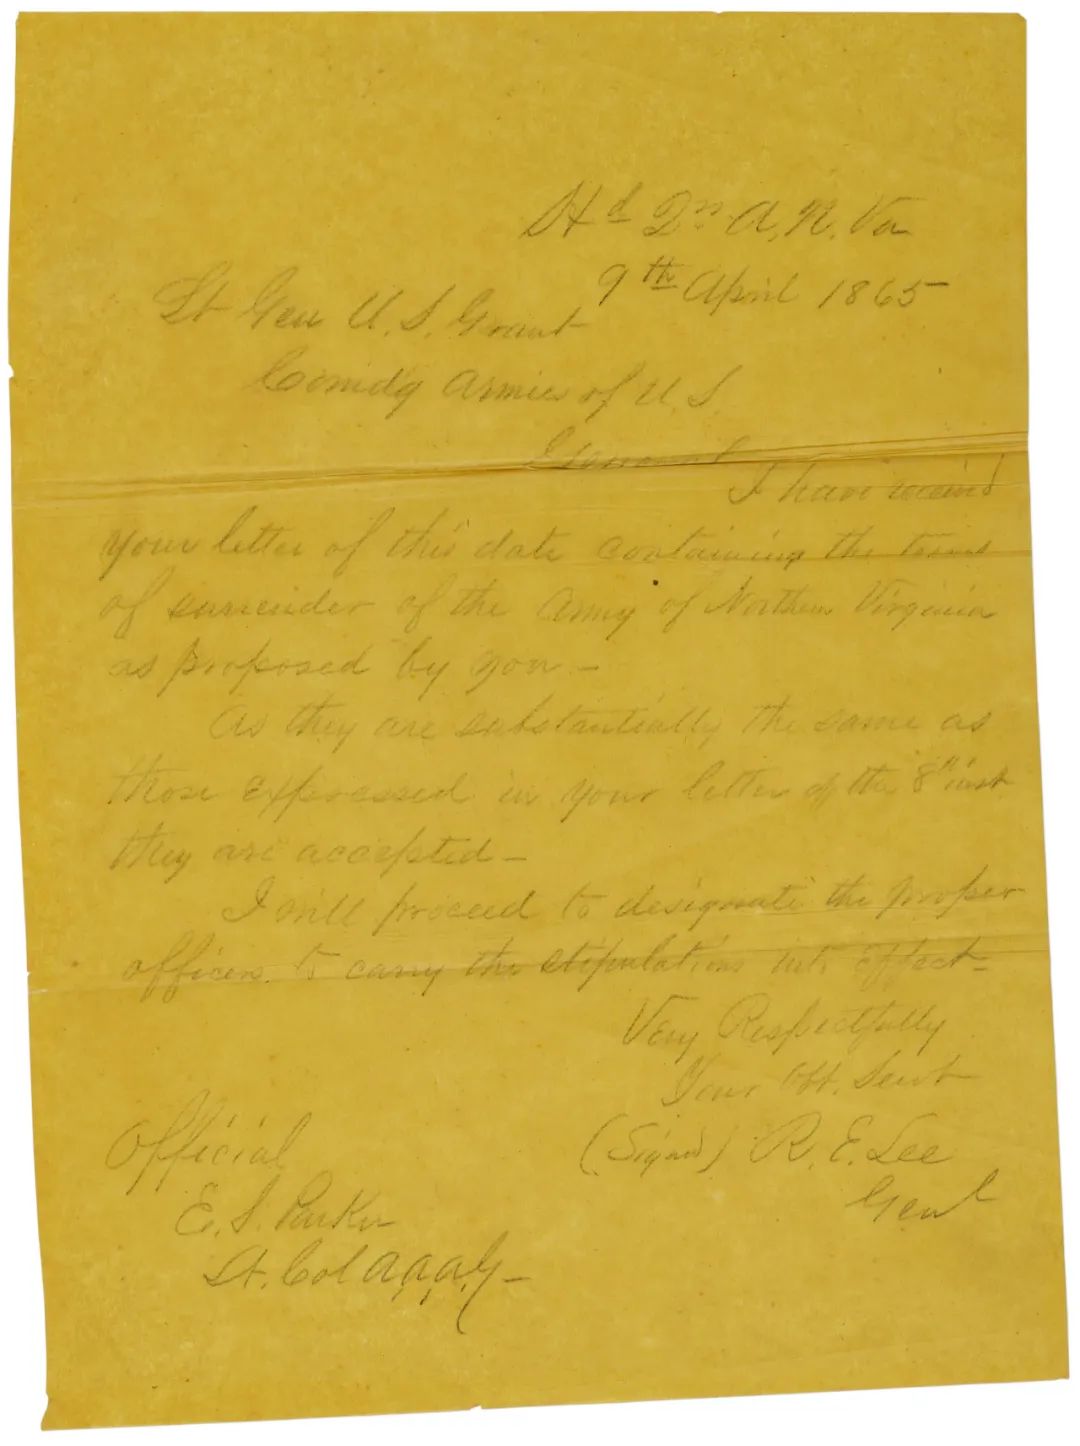 Hd Qrs A. N. Va
9th April 1865
Lt Gen U. S. Grant
Comdg Armies of U. S.
General
I have received
your letter of this date containing the terms
of surrender of the Army of Northern Virginia
as proposed by you –
As they are substantially the same as
those expressed in your letter of the 8th inst
they are accepted –
I will proceed to designate the proper
officers to carry the stipulations into effect –
Very Respectfully
Your Obt. Servt
(Signed) R. E. Lee
Genl
Official
E. S. Parker
Lt. Col A. A. A. G –